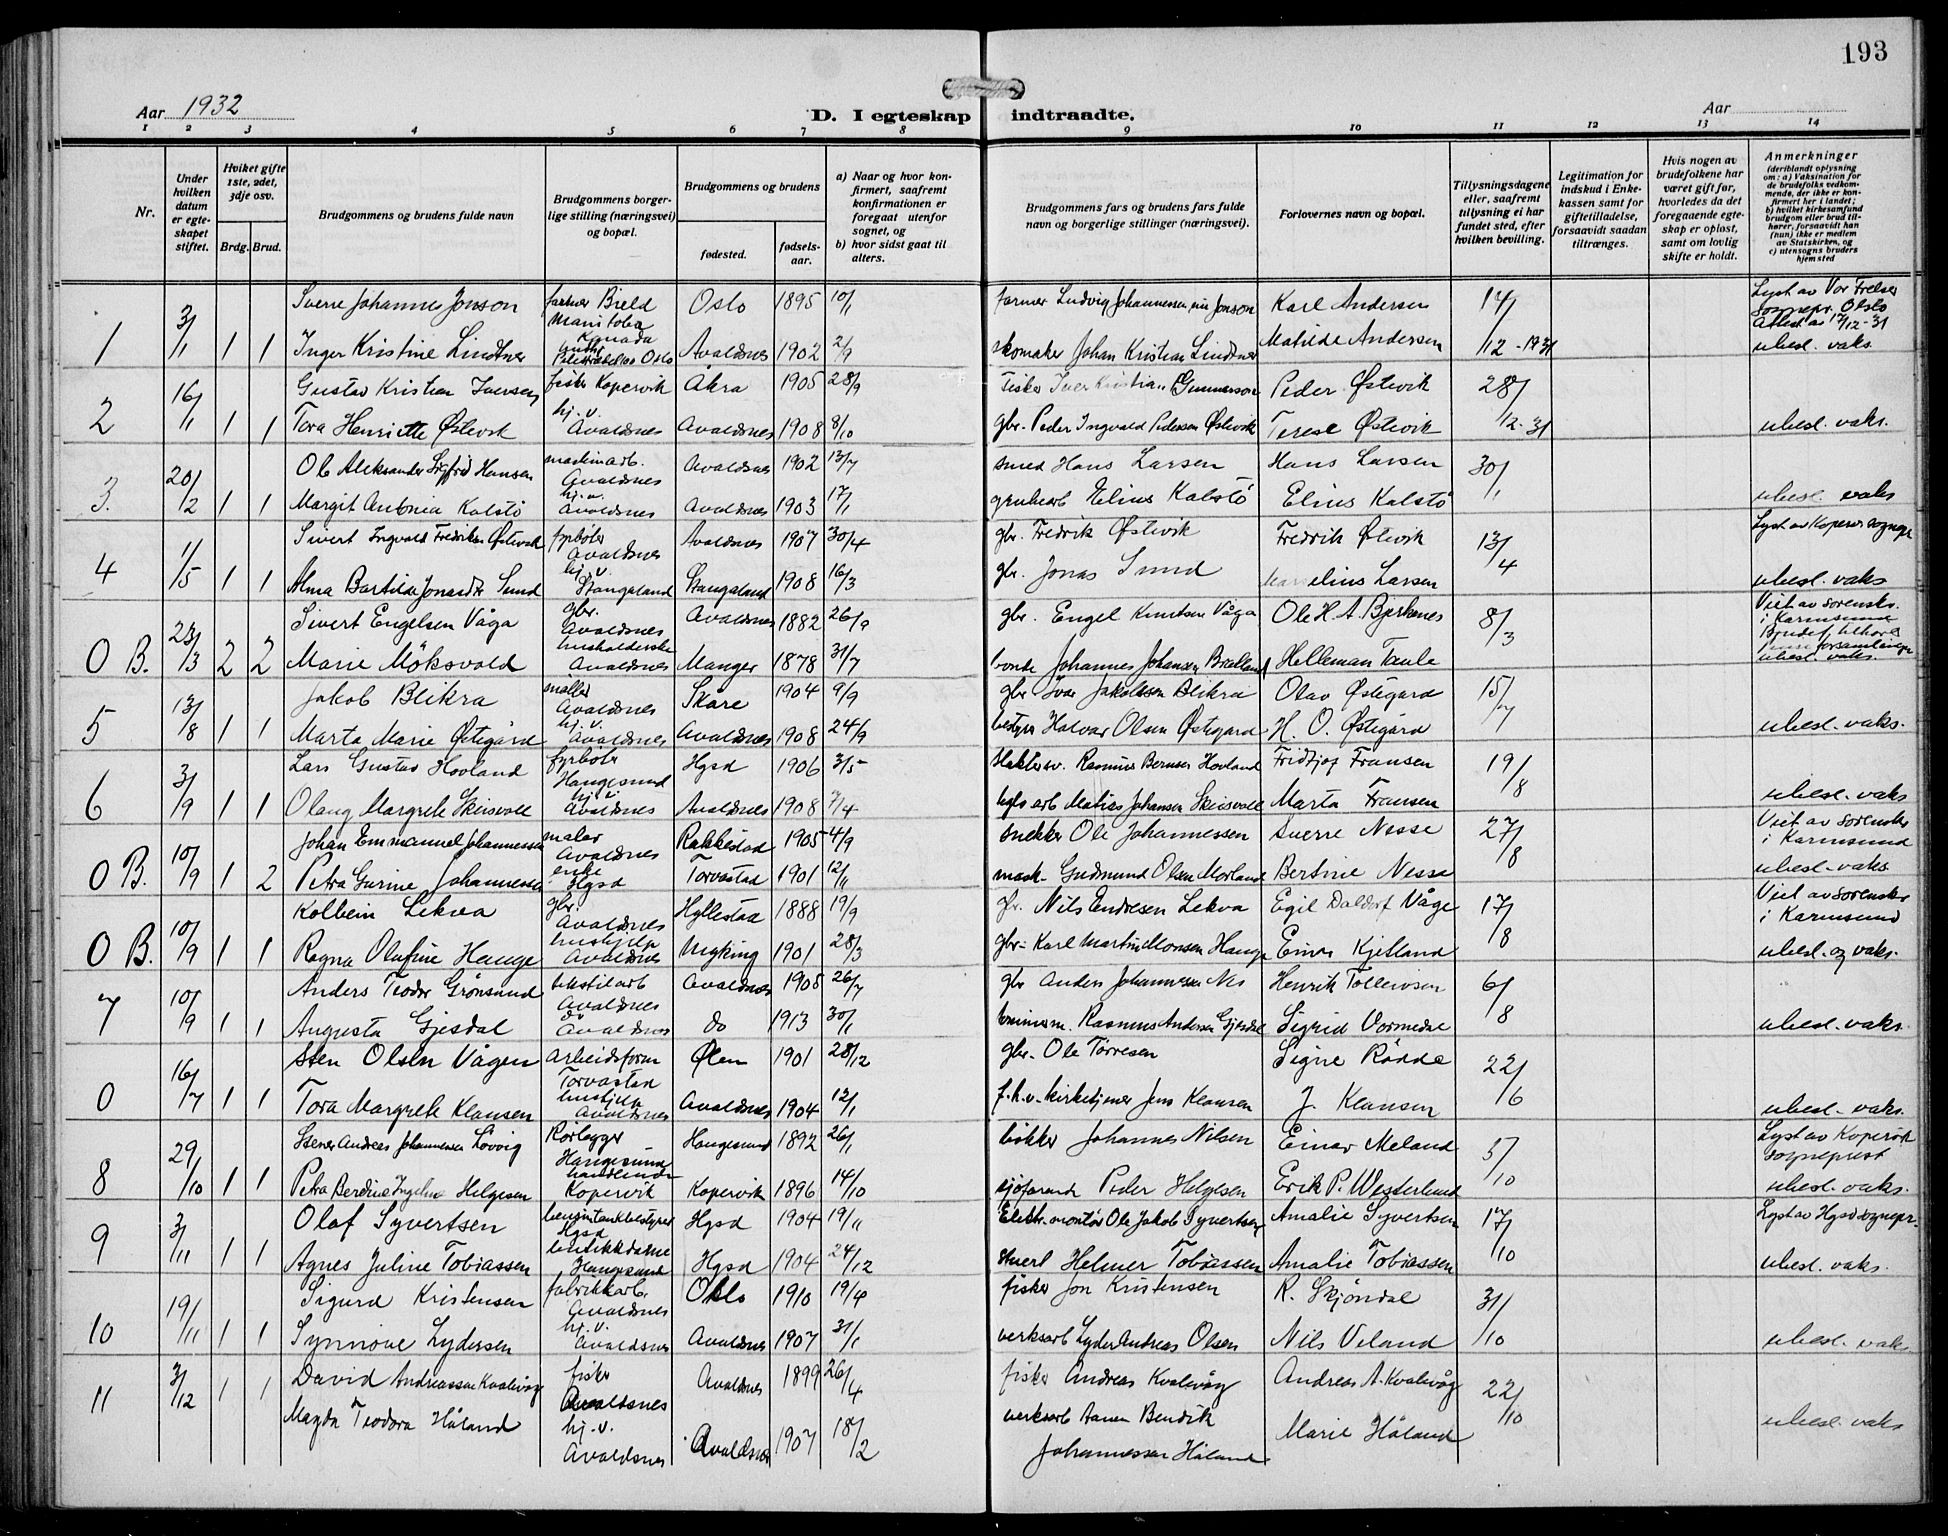 193
Aar 1932
D. I egteskap indtraadte.
Aar
1 2 3 4 5 6 7 8 9 10 11 12 13 14
Nr.
Under hvilken datum er egteskapet stiftet.
Hviket gifte 1ste, 2det, 3dje osv.
Brdg. Brud.
Brudgommens og brudens fulde navn
Brudgommens borgerlige stilling (næringsvei) og bopæl.
Brudgommens og brudens
fødested.
fødselsaar.
a) Naar og hvor konfirmert, saafremt konfirmationen er foregaat utenfor sognet, og
b) hvor sidst gaat til alters.
Brudgommens fars og brudens fars fulde navn og borgerlige stillinger (næringsvei).
Forlovernes navn og bopæl.
Tillysningsdagene eller, saafremt tillysning ei har fundet sted, efter hvilken bevilling.
Legitimation for indskud i Enkekassen samt for giftetilladelse, forsaavidt saadan tiltrænges.
Hvis nogen av brudefolkene har været gift før, hvorledes da det foregaaende egteskap er opløst, samt om lovlig skifte er holdt.
Anmerkninger
(deriblandt oplysning om: a) Vaksination for de brudefolks vedkommende, der ikke er konfirmert her i landet; b) hvilket kirkesamfund brudgom eller brud tilhører, forsaavidt han (hun) ikke er medlem av Statskirken, og c) utensogns bruders hjemsted
1 3/1 1 1 Sverre Johannes Jonson farmer Bield Manitoba Kanada Oslo 1895 10/1 farmer Ludvig Johannessen nu Jonson Karl Andersen 14/12-1931 Lyst av Vor Frelser sognepr. Oslo Attest av 17/12-31
Inger Kristine Lindtner Oslo Avaldsnes 1902 2/9 skomaker Johan Kristian Lindtner Matilde Andersen ubesl. vaks.
2 16/1 1 1 Gustav Kristian Iversen fisker Kopervik Åkra 1905 28/9 fisker Iver Kristian Gunnarson Peder Østevik 28/12-31
Tora Henriette Østevik hj. v. Avaldsnes Avaldsnes 1908 8/10 gbr. Peder Ingvald Pedersen Østevik Terese Østevik ubesl. vaks.
3. 20/2 1 1 Ole Aleksander Sigfrid Hansen maskinarb. Avaldsnes Avaldsnes 1902 13/7 smed Hans Larsen Hans Larsen 30/1
Margit Antonia Kalstø hj. v. Avaldsnes Avaldsnes 1903 17/1 grubearb Elius Kalstö Elius Kalstö ubesl. vaks
4 1/5 1 1 Sivert Ingvald Fredriksen Østevik fyrbøter Avaldsnes Avaldsnes 1907 30/4 gbr. Fredrik Østevik Fredrik Østevik 13/4 Lyst av Koperv sognepr
Alma Bertilie Jonasdtr Sund hj. v. Stangaland Stangaland 1908 16/3 gbr. Jonas Sund Marselius Larsen ubesl. vaks
0 B. 23/3 2 2 Sivert Engelsen Våga gbr. Avaldsnes Avaldsnes 1882 26/9 gbr. Engel Knutsen Våga Ole H. A. Bjerknes 8/3 Viet av sorensk. i Karmsund
Marie Möksvold husholderske Avaldsnes Manger 1878 31/7 bonde Johannes Johansen Brælland Helleman Taule ubesl. vaks.
5 13/8 1 1 Jakob Blikra møller Avaldsnes Skåre 1904 9/9 gbr Ivar Jakobsen Blikra Olav Østegård 15/7
Marta Marie Østegård hj. v. Avaldsnes Avaldsnes 1908 24/9 bestyrer Halvar Olsen Østegård H. O. Østegård ubesl. vaks.
6 3/9 1 1 Lars Gustav Hovland fyrbøter Haugesund Hgsd 1906 3/5 slakter sv. Rasmus Bernsen Hovland Fridtjof Fransen 19/8
Olaug Margrete Skeisvoll hj. v. Avaldsnes Avaldsnes 1908 7/4 Matias Johansen Skeisvoll Marta Fransen ubesl. vaks
0 B. 10/9 1 2 Johan Emmanuel Johannessen maler Avaldsnes Rakkestad 1905 4/9 snekker Ole Johannessen Sverre Nesse 27/8 Viet av sorensker i Karmsund
Petra Gurine Johannessen enke Hgsd Torvastad 1901 12/11 mask. Gudmund Olsen Morland Bertine Nesse ubesl. vaks
0 B. 10/9 1 1 Kolbein Lekva gbr. Avaldsnes Hyllestad 1888 19/9 Nils Endresen Lekva Egil Daldorf Våge 17/8 Viet av sorensker i Karmsund
Ragna Olufine Hauge hushjelp Avaldsnes 1901 28/3 gbr. Karl Martin Monsen Hauge Einar Kjetland ubesl. og vaks.
7 10/9 1 1 Anders Teodor Grønsund tekstilarb Avaldsnes Avaldsnes 1908 26/7 gbr Anders Johannesen Nes Henrik Tollevsen 6/8
Augusta Gjesdal do Avaldsnes do 1913 30/1 tømmerm. Rasmus Andersen Gjesdal Sigrid Vormedre ubesl. vaks.
0 16/7 1 1 Sten Olsen Vågen arbeidsform Torvastad Ølen 1901 28/12 gbr. Ole Torresen Signe Rødde 22/6
Tora Margrete Klausen hushjelp Avaldsnes Avaldsnes 1904 12/1 f.h.v. kirketjener Jens Klausen J. Klausen ubesl. vaks.
8 29/10 1 1 Stener Andreas Johannessen Lövvig Rørlegger Haugesund Haugesund 1892 26/1 bökker Johannes Nilsen Einar Meland 5/10 Lyst av Kopervik sogneprest
Petra Berdine Ingeline Helgesen handlende Kopervik Kopervik 1896 14/10 sjöfarende Peder Helgesen Erik P. Westerlund ubesl. vaks.
9 3/11 1 1 Olaf Syvertsen bensintankbestyrer Hgsd Hgsd 1904 19/11 Elektr. montør Ole Jakob Syvertsen Amalie Syvertsen 17/10 Lyst av Hgsd sognepr.
Agnes Juline Tobiassen butikkdame Haugesund Hgsd 1904 24/12 stuert Helmer Tobiassen Amalie Tobiassen ubesl. vaks.
10 19/11 1 1 Sigurd Kristensen fabrikkarb. Avaldsnes Oslo 1910 19/4 fisker Jon Kristensen R. Skjöndal 31/10
Synnöve Lydersen hj. v. Avaldsnes Avaldsnes 1907 31/1 verksarb Lyder Andreas Olsen Nils Veland ubesl. vaks.
11 3/12 1 1 David Andreassen Kvalevåg fisker Avaldsnes Avaldsnes 1899 26/4 fisker Andreas Kvalevåg Andreas A. Kvalevåg 22/10
Magda Teodora Håland hj. v. Avaldsnes Avaldsnes 1907 18/2 verksarb Aanen Bendik Johannessen Håland Marie Håland ubesl. vaks